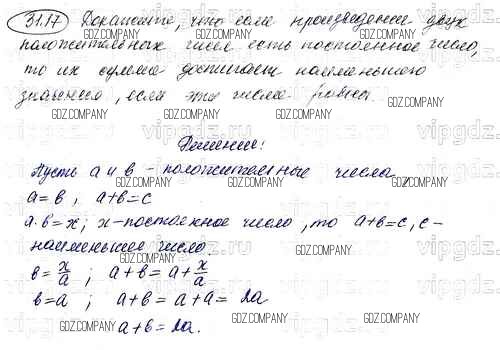 31.17 Докажите, что если произведение двух
положительных чисел есть постоянное число,
то их сумма достигает наименьшего
значения, если эти числа равны.
Решение:
Пусть a и b - положительные числа
a = b, a+b=c
a·b=x; x-постоянное число, то a+b=c, c-
наименьшее число.
b = x/a ; a+b = a + x/a
b=a ; a+b = a+a = 2a
a+b = 2a.